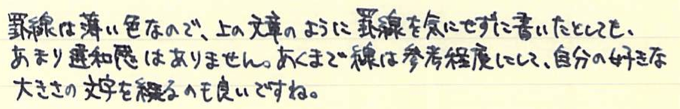 罫線は薄い色なので、上の文章のように罫線を気にせずに書いたとしても、
あまり違和感はありません。あくまで線は参考程度にして、自分の好きな
大きさの文字を綴るのも良いですね。